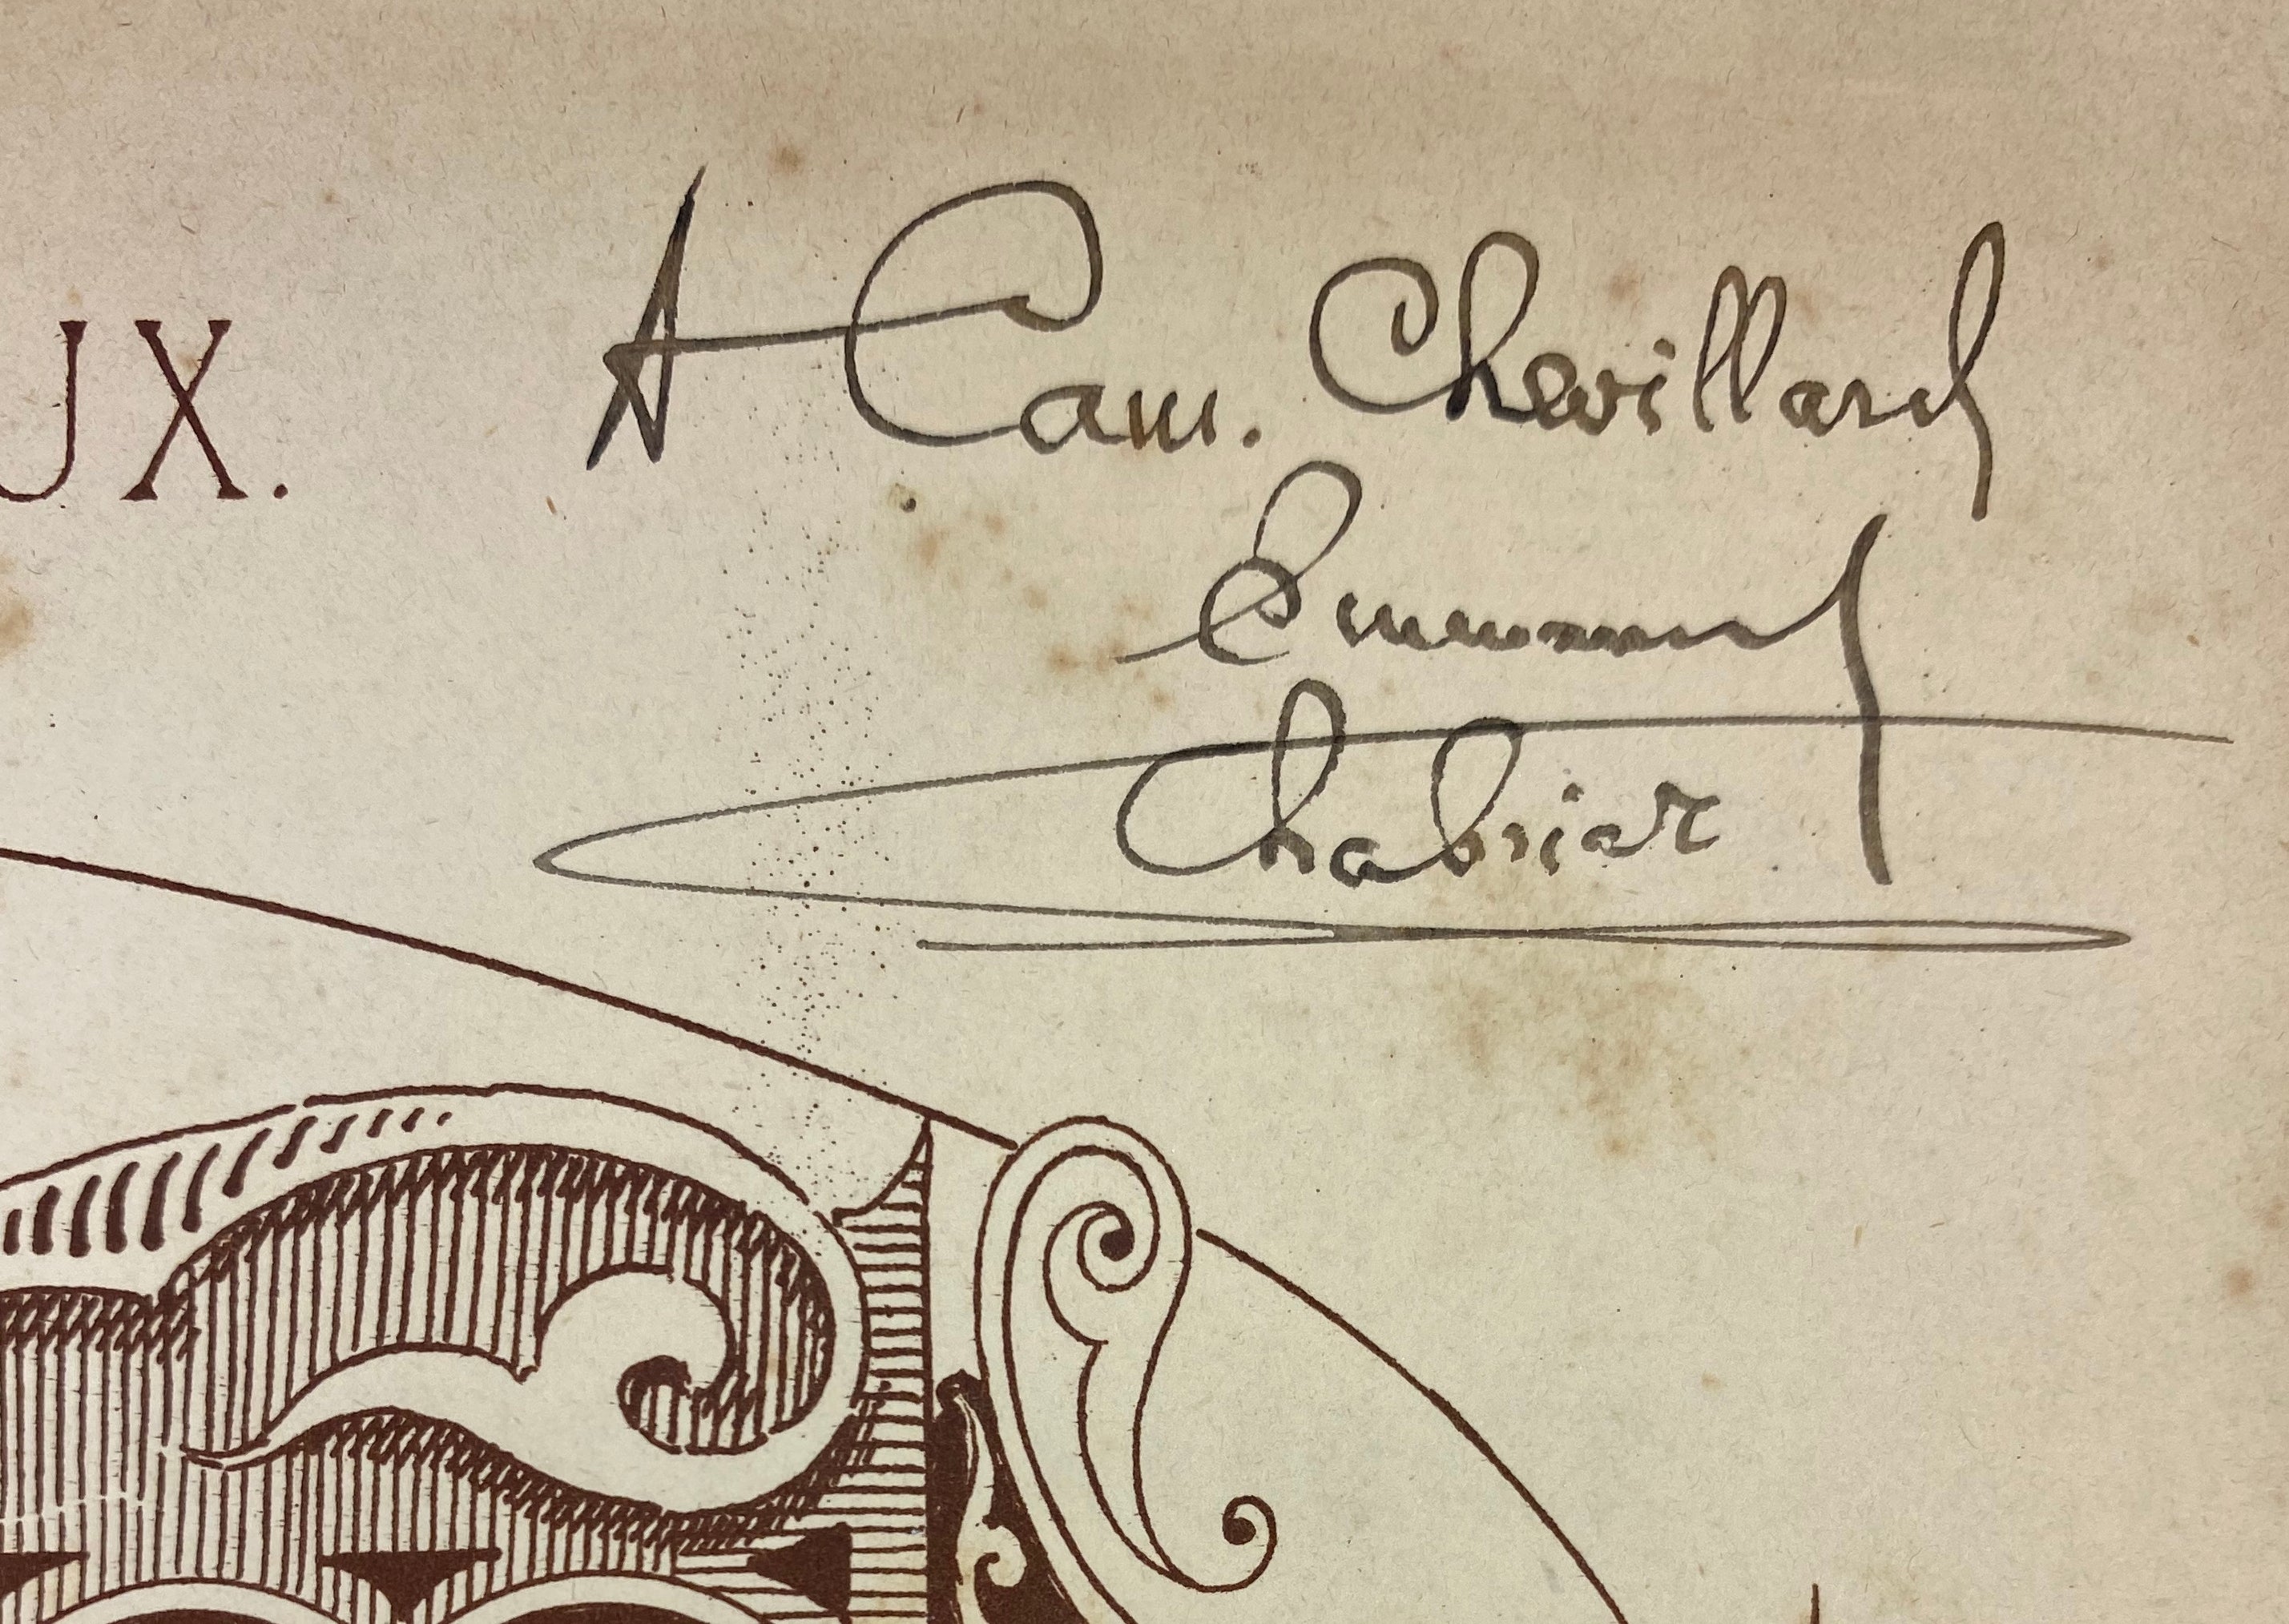 A Cam. Chevillard
UX.
Emmanuel
Chabrier